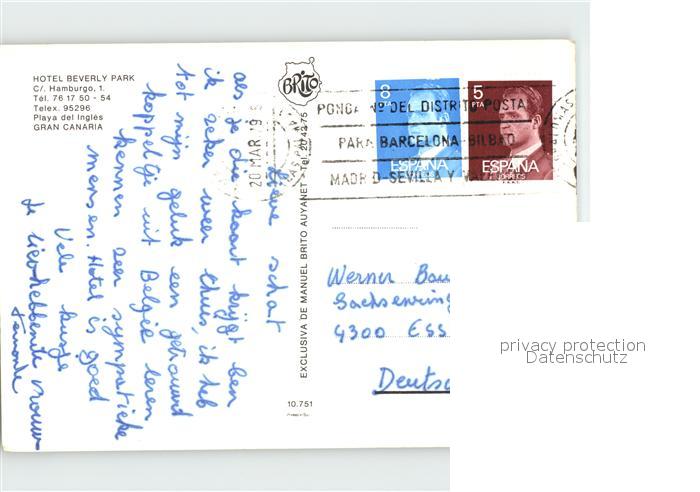 HOTEL BEVERLY PARK
C/. Hamburgo, 1.
Tél. 76 17 50 - 54
Telex. 95296
Playa del Inglés
GRAN CANARIA
BRITO
20 MAR 79
PONGA Nº DEL DISTRITO POSTAL
PARA BARCELONA-BILBAO
MADRID-SEVILLA Y
8 PTA
ESPAÑA
CORREOS
5 PTA
ESPAÑA
CORREOS
EXCLUSIVA DE MANUEL BRITO AUYANET - Tel. 20 42 75
10.751
Lieve schat
als je die kaart krijgt ben
ik zeker weer thuis, ik heb
tot mijn geluk een getrouwd
koppeltje uit België leren
kennen zeer sympatieke
mensen. Hotel is goed
Vele kusje
je liefhebbende vrouw
Simonne
Werner Bau
Sachsenring
4300 ESS
Deutsc
privacy protection
Datenschutz